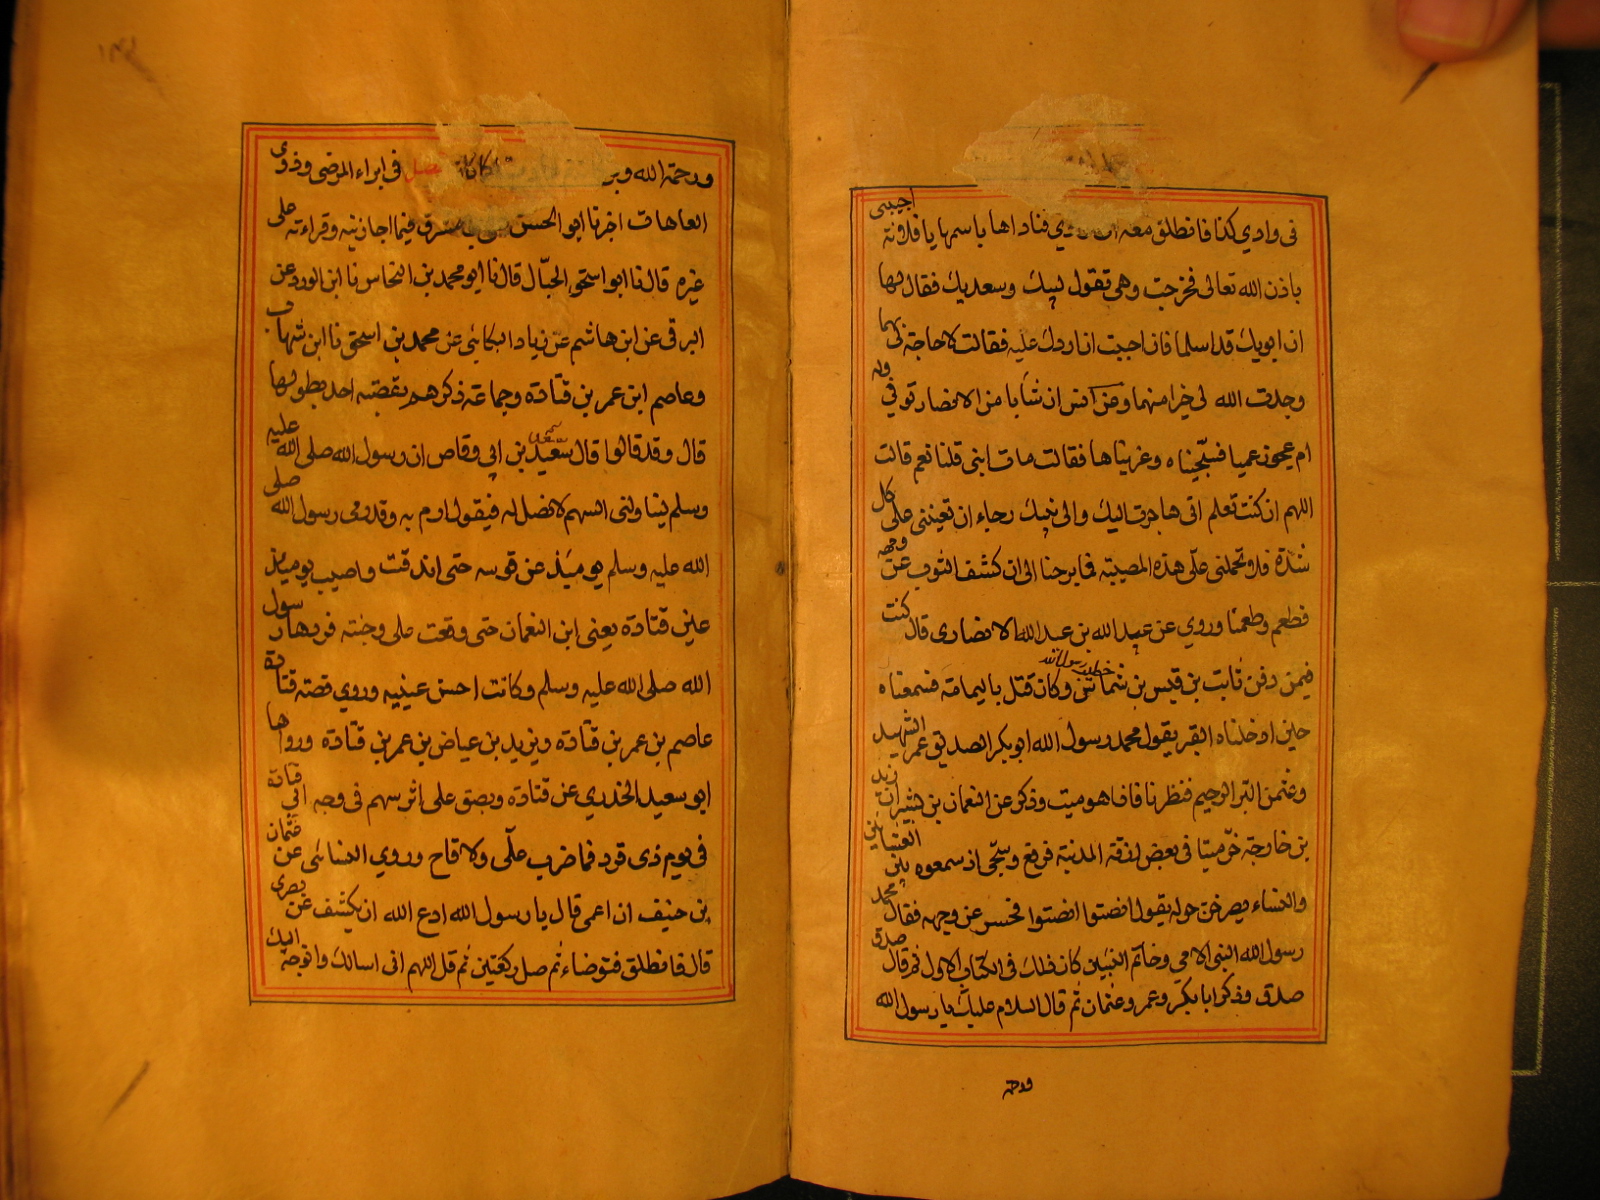 في وادي كذا فانطلق معه الى الوادي فناداها باسمها يا فلانة اجيبي
باذن الله تعالى فخرجت وهي تقول لبيك وسعديك فقال لها
ان ابويك قد اسلما فان احببت ان اردك عليهما فقالت لا حاجة لي
وجدت الله لي خيرا منهما وعن انس ان شابا من الانصار توفي وله
ام عجوز عميا فسجيناه وعزيناها فقالت مات ابني قلنا نعم قالت
اللهم ان كنت تعلم اني هاجرت اليك والى نبيك رجاء ان تعينني على كل
شدة فلا تحملني على هذه المصيبة فما برحنا الى ان كشف الثوب عن وجهه
فطعم وطعمنا وروي عن عبد الله بن عبيد الله الانصاري قال كنت
فيمن دفن ثابت بن قيس بن شماس وكان قتل باليمامة فسمعناه
حين ادخلناه القبر يقول محمد رسول الله ابو بكر الصديق عمر الشهيد
وعثمن البر الرحيم فنظرنا فاذا هو ميت وذكر عن النعمان بن بشير ان زيد
بن خارجة خر ميتا في بعض ازقة المدينة فرفع وسجى اذ سمعوه بين العشائين
والنساء يصرخن حوله يقول انصتوا انصتوا فحسر عن وجهه فقال محمد
رسول الله النبي الامي وخاتم النبيين كان ذلك في الكتاب الاول ثم قال صدق
صدق وذكر ابا بكر وعمر وعثمان ثم قال السلام عليك يا رسول الله
ورحمة
ورحمة الله وبر كان فصل في ابراء المرضى وذوي
العاهات اخبرنا ابو الحسن علي بن مشرف فيما اجازنيه وقراءته على
غيره قال نا ابو اسحق الحبال قال نا ابو محمد بن النحاس نا ابن الورد عن
البرقي عن ابن هاشم عن زياد البكائي عن محمد بن اسحق نا ابن شهاب
وعاصم ابن عمر بن قتادة وجماعة ذكرهم بقضية احد بطولها
قال وقد قالوا قال سعيد بن ابي وقاص ان رسول الله صلى الله عليه
وسلم ليناولني السهم لا نصل له فيقول ارم به وقد رمى رسول الله صلى
الله عليه وسلم يومئذ عن قوسه حتى اندقت واصيب يومئذ
عين قتادة يعني ابن النعمان حتى وقعت على وجنته فردها رسول
الله صلى الله عليه وسلم وكانت احسن عينيه وروي قصة قتادة
عاصم بن عمر بن قتادة ويزيد بن عياض بن عمر بن قتادة ورواها
ابو سعيد الخدري عن قتادة وبصق على اثر سهم في وجه ابي قتادة
في يوم ذي قرد فما ضرب علي ولا قاح وروي النسائي عن عثمان
بن حنيف ان اعمى قال يا رسول الله ادع الله ان يكشف عن بصري
قال فانطلق فتوضاء ثم صل ركعتين ثم قل اللهم اني اسالك واتوجه اليك